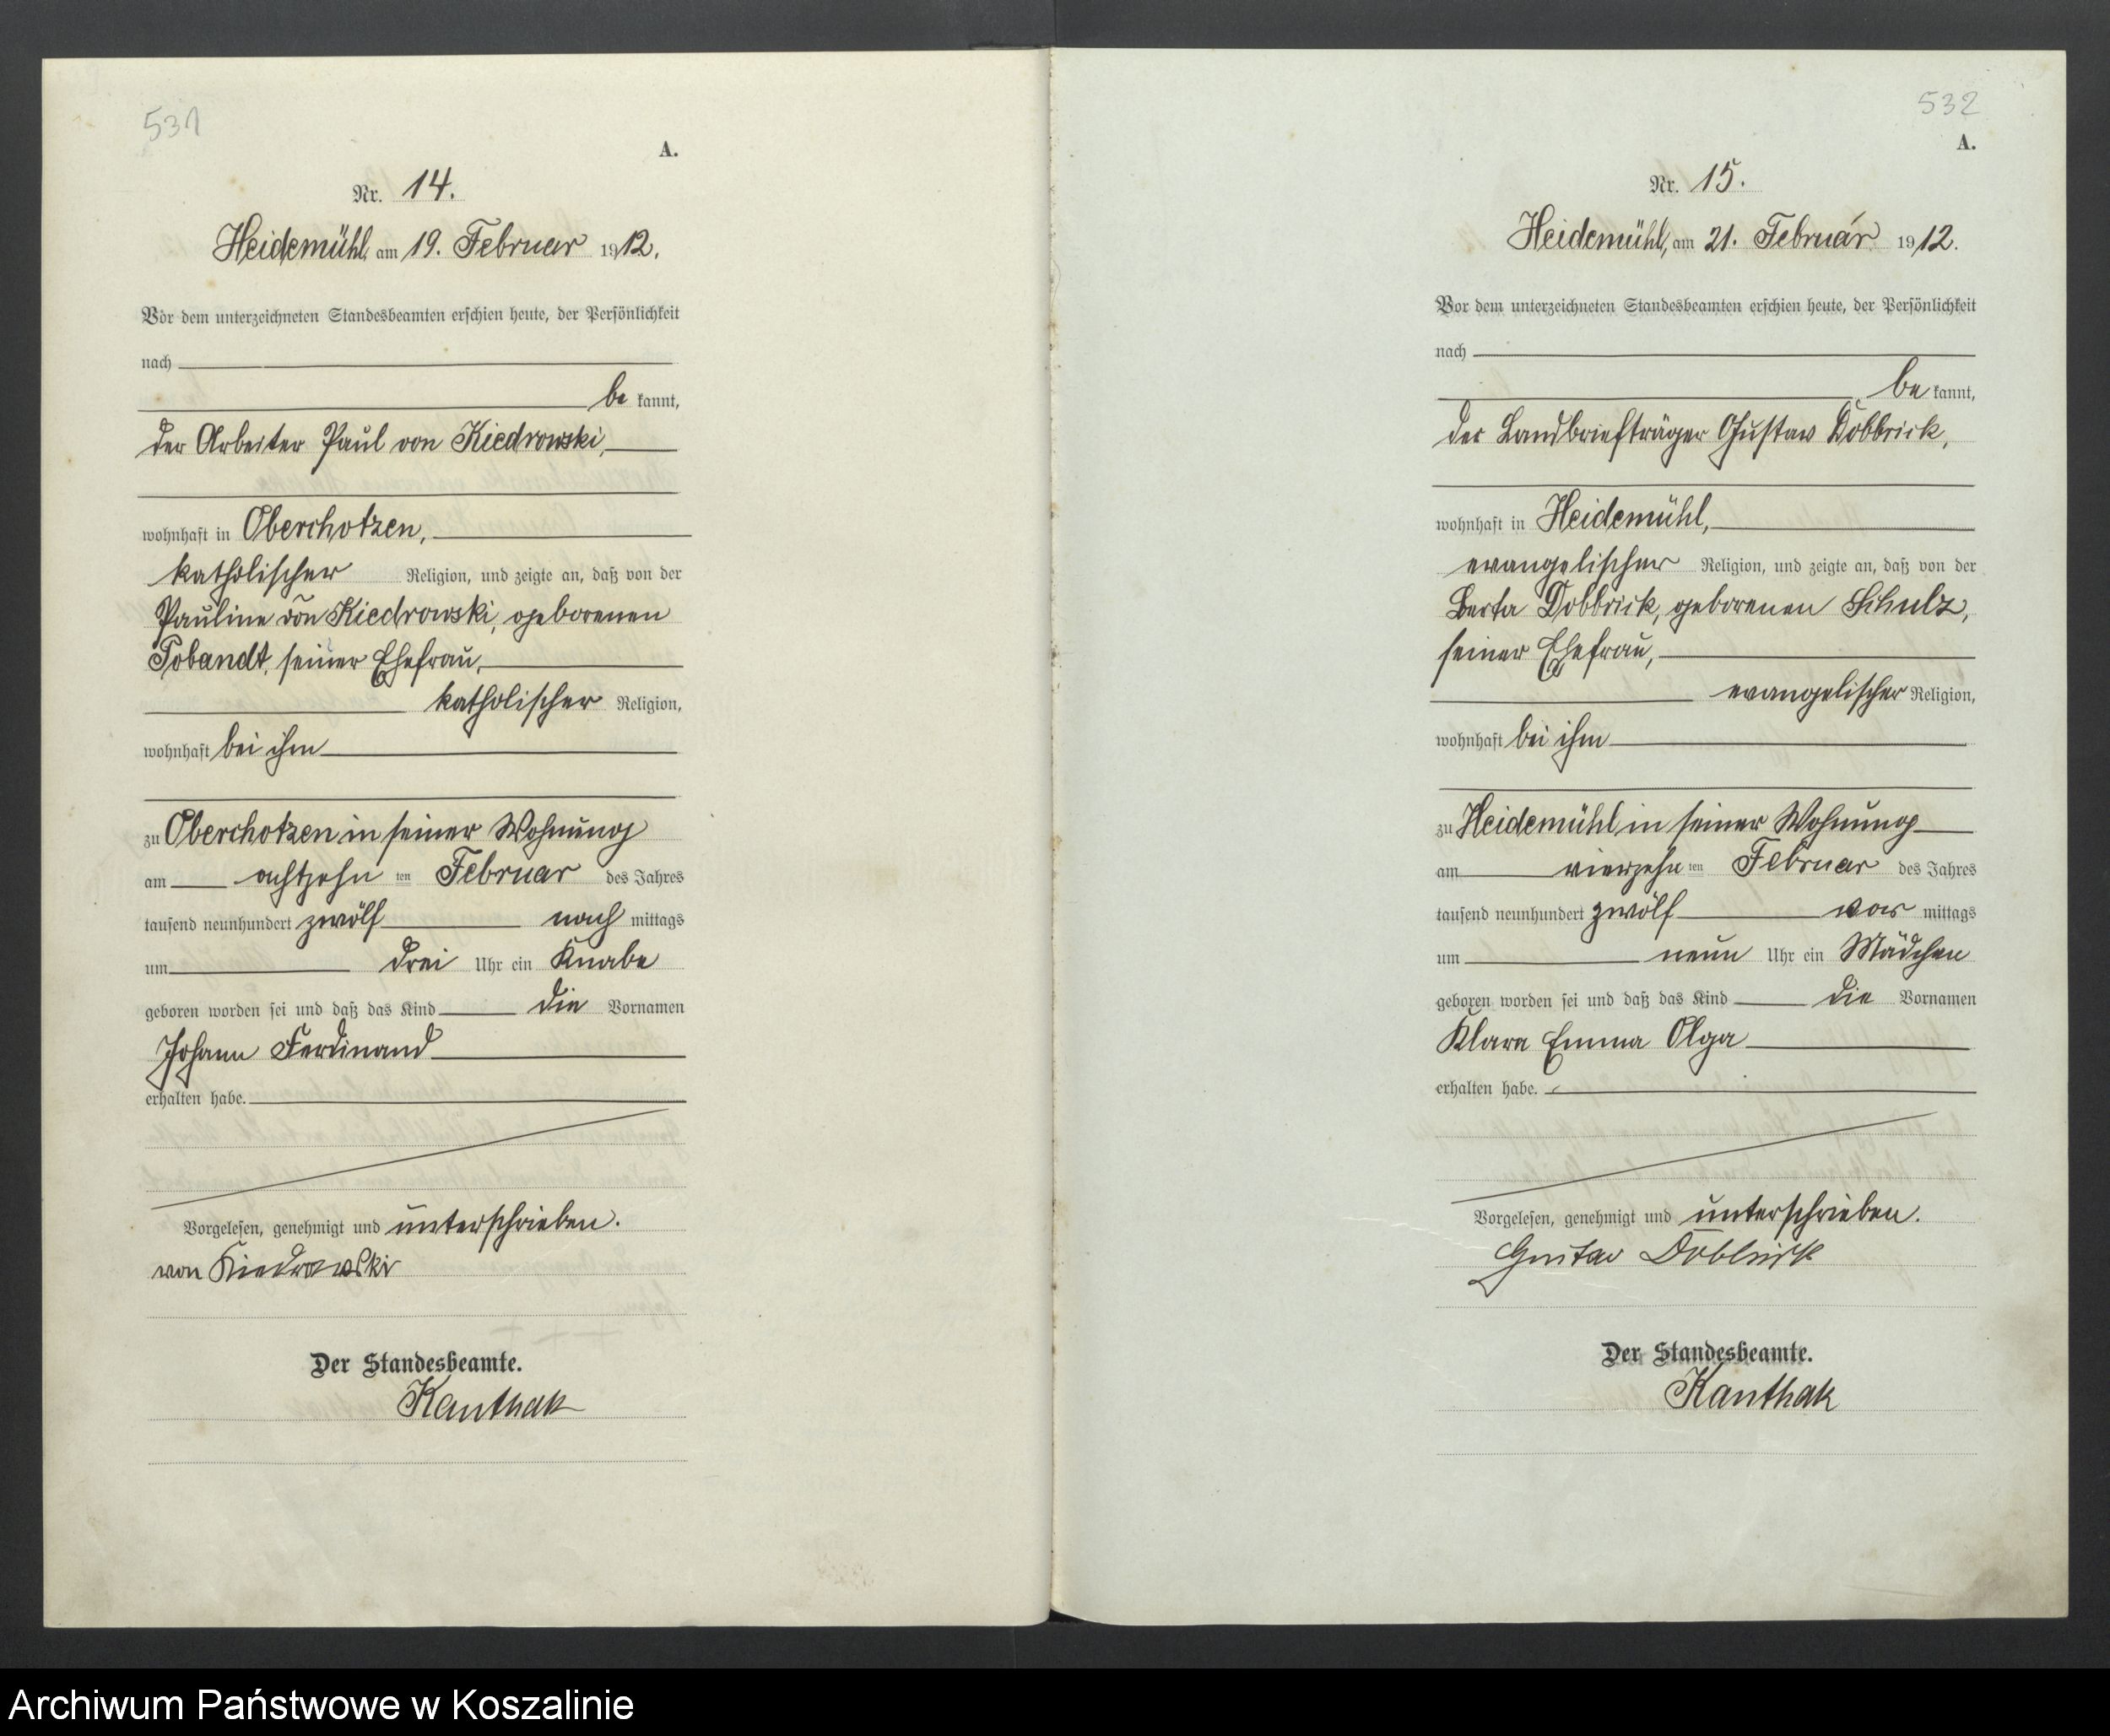 531
A.
Nr. 14.
Heidemühl, am 19. Februar 1912.
Vor dem unterzeichneten Standesbeamten erschien heute, der Persönlichkeit
nach
be kannt,
der Arbeiter Paul von Kiedrowski,
wohnhaft in Oberchotzen,
katholischer Religion, und zeigte an, daß von der
Pauline von Kiedrowski, geborenen
Pobandt, seiner Ehefrau,
katholischer Religion,
wohnhaft bei ihm
zu Oberchotzen in seiner Wohnung
am achtzehn ten Februar des Jahres
tausend neunhundert zwölf nach mittags
um drei Uhr ein Knabe
geboren worden sei und daß das Kind die Vornamen
Johann Ferdinand
erhalten habe.
Vorgelesen, genehmigt und unterschrieben.
von Kiedrowski
Der Standesbeamte.
Kanthak
532
A.
Nr. 15.
Heidemühl, am 21. Februar 1912.
Vor dem unterzeichneten Standesbeamten erschien heute, der Persönlichkeit
nach
be kannt,
der Landbriefträger Gustav Dobbrick,
wohnhaft in Heidemühl,
evangelischer Religion, und zeigte an, daß von der
Berta Dobbrick, geborenen Schulz,
seiner Ehefrau,
evangelischer Religion,
wohnhaft bei ihm
zu Heidemühl in seiner Wohnung
am vierzehn ten Februar des Jahres
tausend neunhundert zwölf vor mittags
um neun Uhr ein Mädchen
geboren worden sei und daß das Kind die Vornamen
Klara Emma Olga
erhalten habe.
Vorgelesen, genehmigt und unterschrieben.
Gustav Dobbrick
Der Standesbeamte.
Kanthak
Archiwum Państwowe w Koszalinie